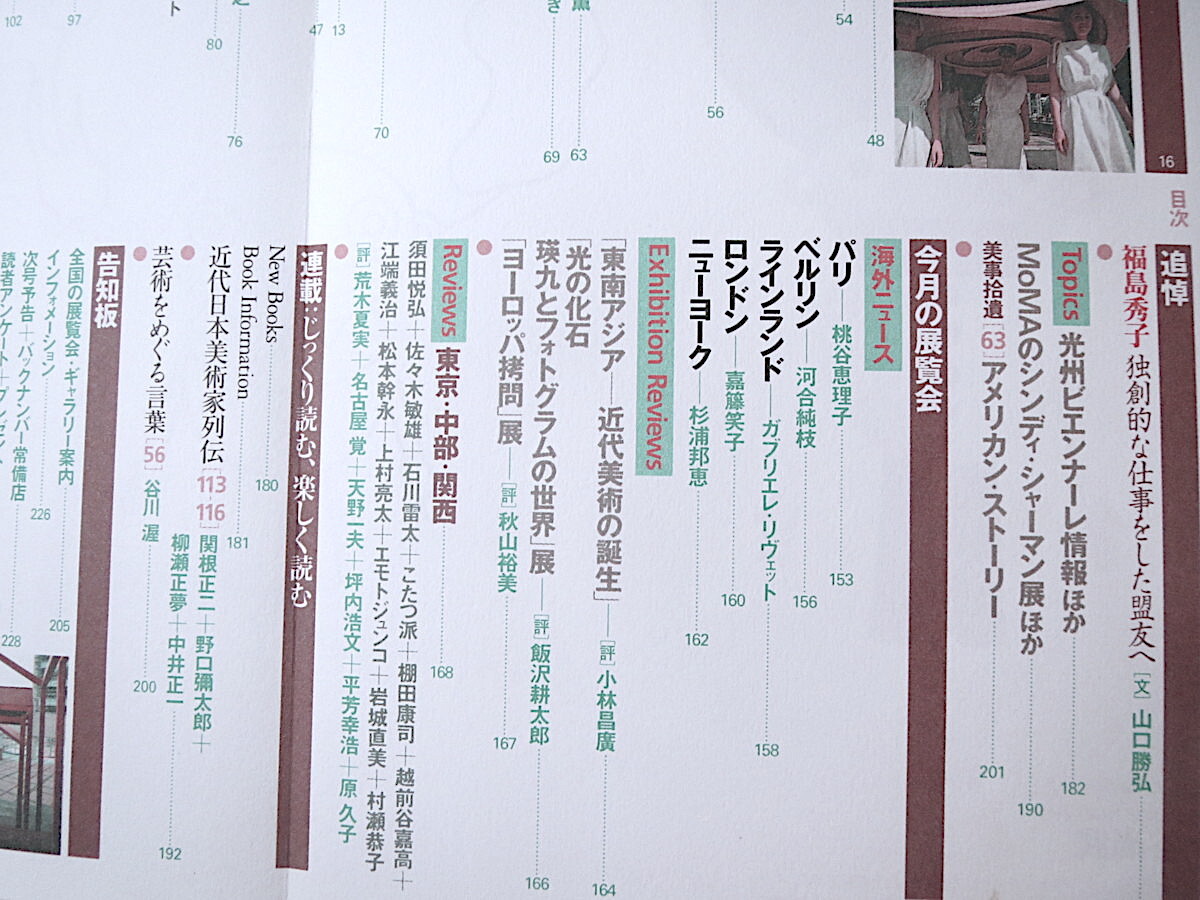 16
54
48
56
63
69
13
47
70
80
76
97
102
目次
追悼
福島秀子 独創的な仕事をした盟友へ [文] 山口勝弘
Topics 光州ビエンナーレ情報ほか 182
MoMAのシンディ・シャーマン展ほか 190
美事拾遺[63]アメリカン・ストーリー 201
今月の展覧会
海外ニュース
パリ──桃谷恵理子 153
ベルリン──河合純枝 156
ラインランド──ガブリエレ・リヴェット 158
ロンドン──嘉藤笑子 160
ニューヨーク──杉浦邦恵 162
Exhibition Reviews
「東南アジア──近代美術の誕生」──[評]小林昌廣 164
「光の化石
瑛九とフォトグラムの世界」展──[評]飯沢耕太郎 166
「ヨーロッパ拷問」展──[評]秋山裕美 167
Reviews 東京・中部・関西 168
須田悦弘＋佐々木敏雄＋石川雷太＋こたつ派＋棚田康司＋越前谷嘉高＋
江端義治＋松本幹永＋上村亮太＋エモトジュンコ＋岩城直美＋村瀬恭子
[評]荒木夏実＋名古屋 覚＋天野一夫＋坪内浩文＋平芳幸浩＋原 久子
連載：じっくり読む、楽しく読む
New Books 180
Book Information 181
近代日本美術家列伝[113-116]関根正二＋野口彌太郎＋
柳瀬正夢＋中井正一 192
芸術をめぐる言葉[56]谷川 渥 200
告知板
全国の展覧会・ギャラリー案内 205
インフォメーション 226
次号予告＋バックナンバー常備店 228
読者アンケート＋プレゼント